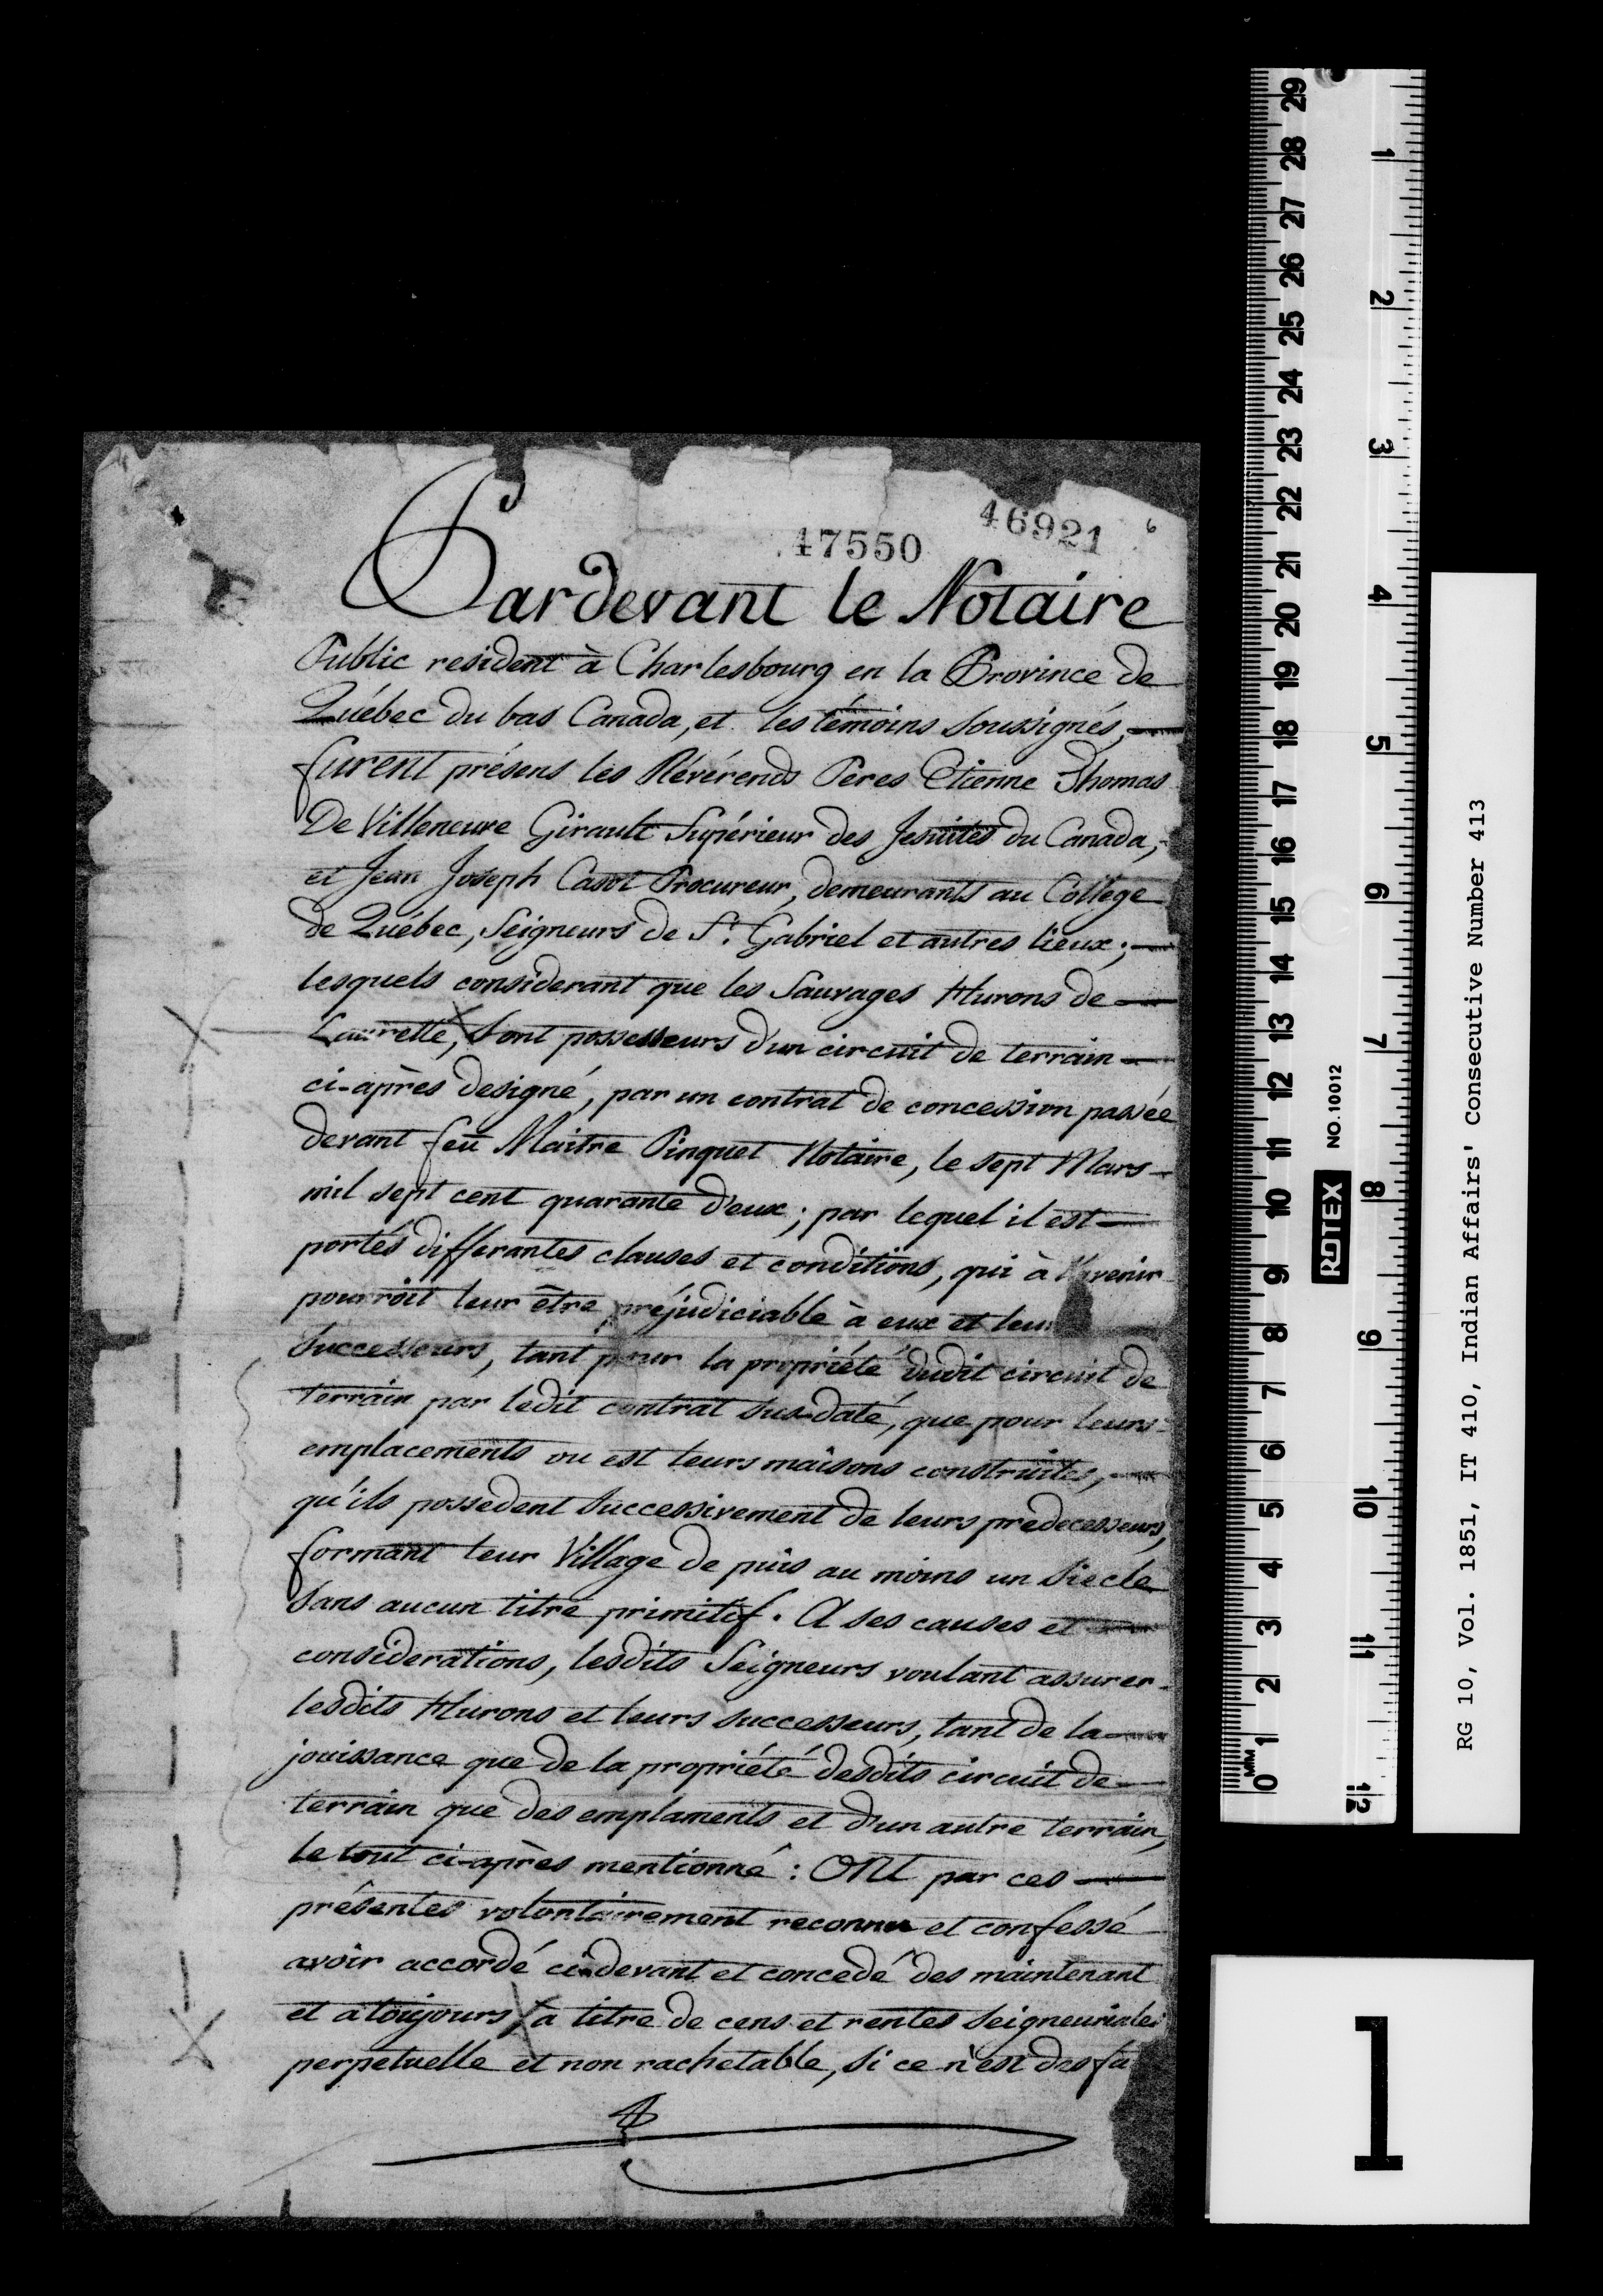 46921
47550
6
Pardevant le Notaire
Public resident à Charlesbourg en la Province de
Québec du bas Canada, et les témoins soussignés,
furent présens les Révérends Peres Etienne Thomas
De Villeneuve Girault Supérieur des Jesuites du Canada,
et Jean Joseph Casot Procureur, demeurants au College
de Québec, Seigneurs de St. Gabriel et autres lieux;
lesquels considerant que les Sauvages Hurons de
Laurette, sont possesseurs d'un circuit de terrain
ci-après designé, par un contrat de concession passée
devant feu Maitre Pinguet Notaire, le sept Mars
mil sept cent quarante deux; par lequel il est
portés differantes clauses et conditions, qui à l'avenir
pourroit leur être préjudiciable à eux et leur
Successeurs, tant pour la propriété dudit circuit de
terrain par ledit contrat sus-daté, que pour leurs
emplacements ou est leurs maisons construites,
qu'ils possedent successivement de leurs predecesseurs,
formant leur Village de puis au moins un siecle
sans aucun titre primitif. A ses causes et
considerations, lesdits Seigneurs voulant assurer
lesdits Hurons et leurs successeurs, tant de la
jouissance que de la propriété desdits circuit de
terrain que des emplaments et d'un autre terrain,
le tout ci-après mentionné: ONt par ces
présentes volontairement reconnu et confessé
avoir accordé ci-devant et concedé des maintenant
et a toujours, à titre de cens et rentes seigneuriales
perpetuelle et non rachetable, si ce n'est des fu
RG 10, Vol. 1851, IT 410, Indian Affairs' Consecutive Number 413
1
ROTEX NO. 10012
MM
0 1 2 3 4 5 6 7 8 9 10 11 12 13 14 15 16 17 18 19 20 21 22 23 24 25 26 27 28 29
1 2 3 4 5 6 7 8 9 10 11 12